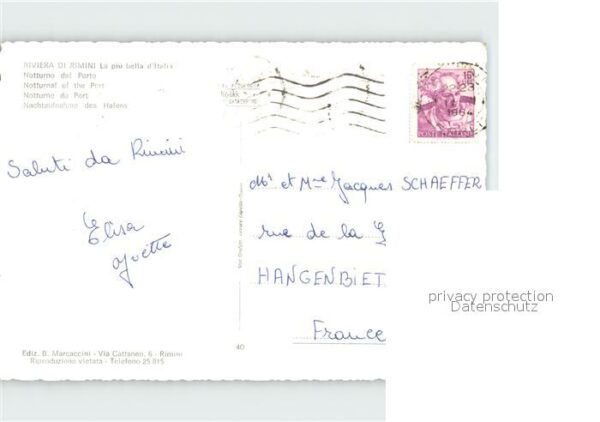 RIVIERA DI RIMINI La più bella d'Italia
Notturno del Porto
Notturnal of the Port
Notturno du Port
Nachtaufnahme des Hafens
16
23
1964
POSTE ITALIANE
Saluti da Rimini
Elisa
Yvette
Mr et Mme Jacques SCHAEFFER
rue de la
HANGENBIET
France
privacy protection
Datenschutz
Ediz. B. Marcaccini - Via Cattaneo, 6 - Rimini
Riproduzione vietata - Telefono 25.815
40